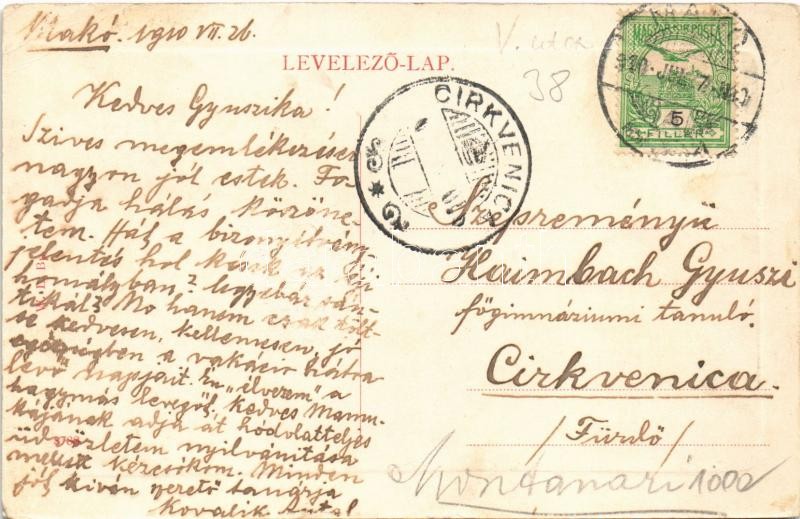 Makó. 1910 VII. 26.
LEVELEZŐ-LAP.
V. utca
38
MAGYAR KIR. POSTA
5
FILLÉR
CIRKVENICA
Kedves Gyuszika!
Szives megemlékezései
nagyon jól estek. Fo-
gadja hálás köszöne-
tem. Hát a bizonyítvány
jelentés hol késik az
homályban? legyebár
No hanem csak tölt-
se kedvesen, kellemesen, jó
egészségben a vakáció hátra
lévő napjait. Én "élvezem" a
hagymás levegőt, kedves Mamu-
kájának adja át hódolatteljes
üdvözletem nyilvánítása
mellett kézcsókom. Minden
jót kiván szerető tanárja
Kovalik Antal
Szépreményű
Haimbach Gyuszi
főgimnáziumi tanuló.
Cirkvenica.
/Fürdő/
Montanari 1002